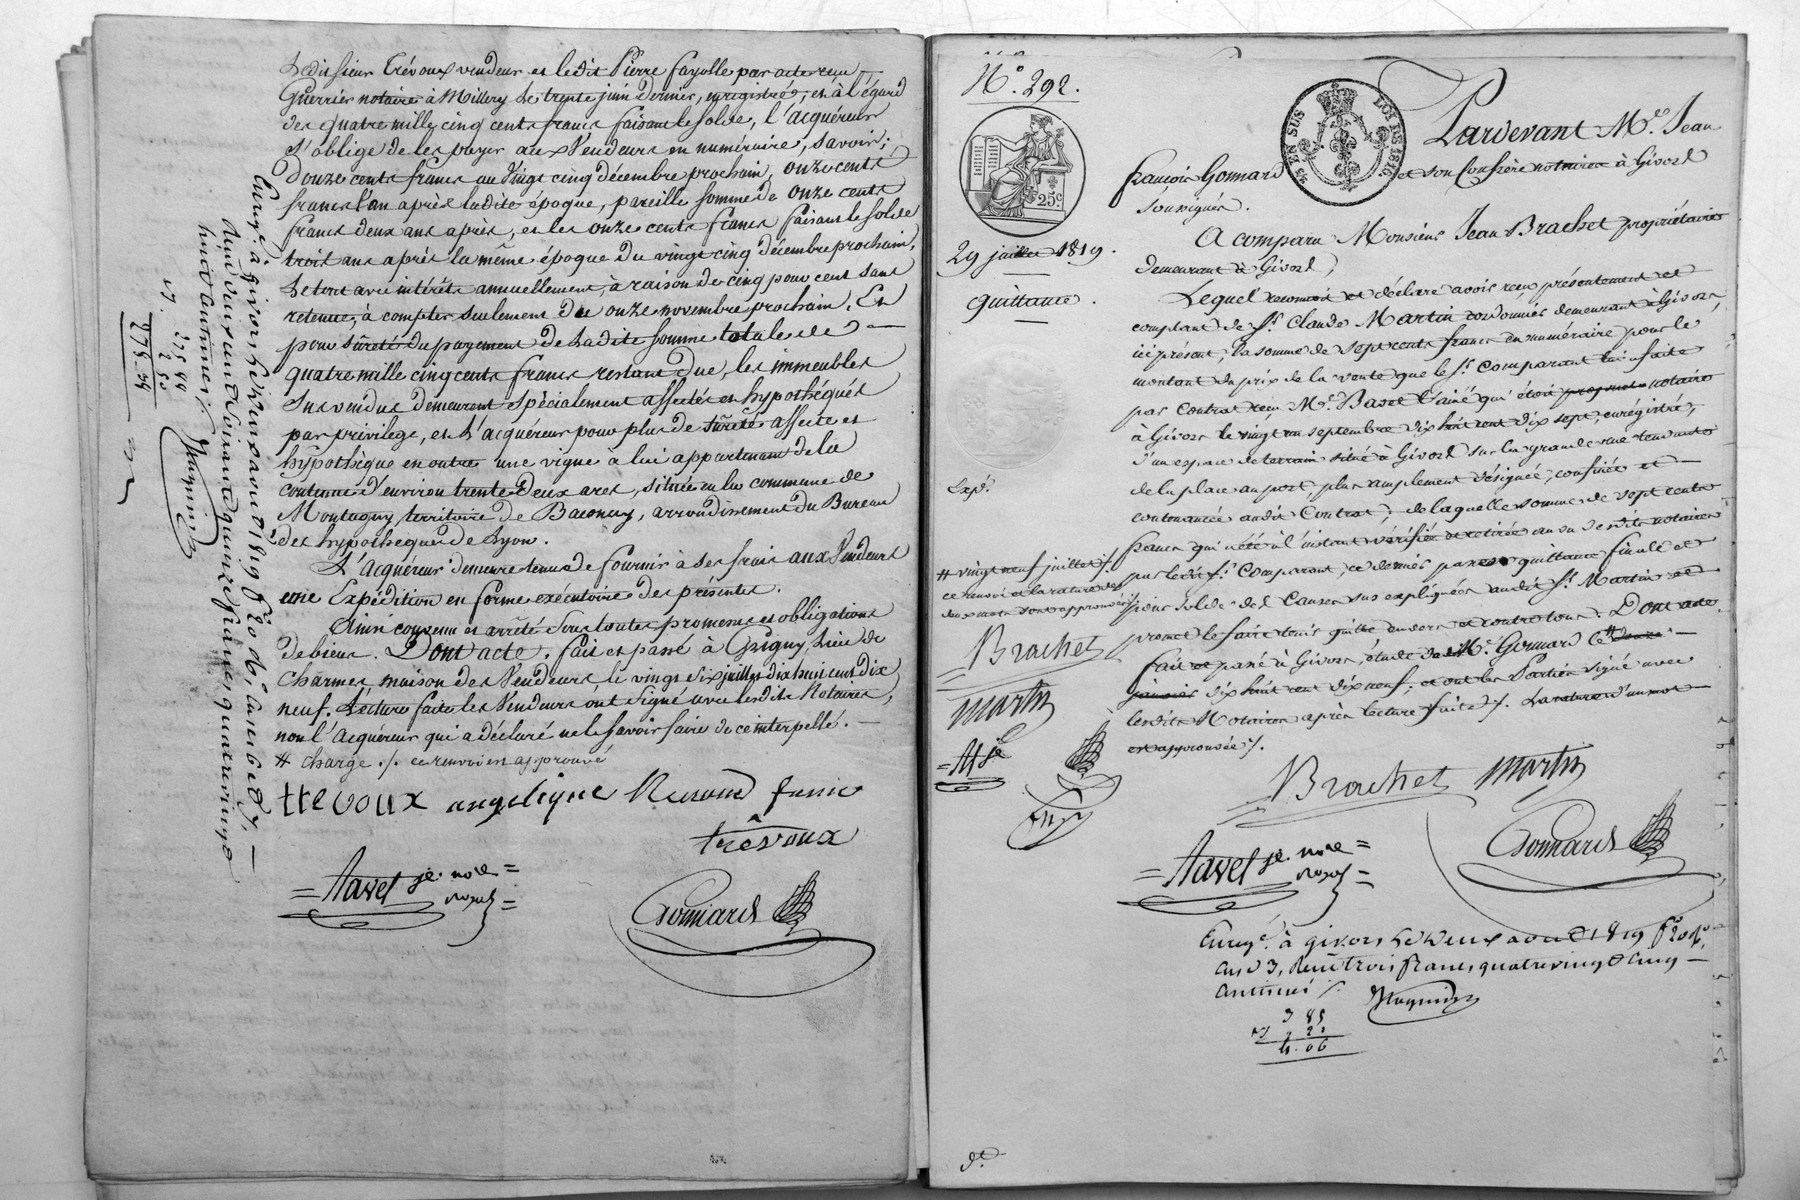 Ledit sieur Trévoux vendeur et ledit Pierre fayolle par acte reçu
Guerrier notaire à Millery le trente juin dernier, enregistré; et à l'égard
des quatre mille cinq cents francs faisant le solde, l'acquéreur
s'oblige de les payer aux Vendeurs en numéraire, savoir;
Douze cents francs au Vingt cinq décembre prochain, onze cents
francs un an après ladite époque, pareille somme de onze cents
francs deux ans après, et les onze cents francs faisant le solde
trois ans après la même époque du vingt cinq décembre prochain,
Le tout avec intérêts annuellement, à raison de cinq pour cent sans
retenue, à compter seulement du onze novembre prochain. Et
pour sûreté du payement de ladite somme totale de
quatre mille cinq cents francs restant due, les immeubles
sus vendus demeurent spécialement affectés et hypothéqués
par privilege, et l'acquéreur pour plus de sûreté affecte et
hypothèque en outre une vigne à lui appartenant de la
contenue d'environ trente deux ares, située en la commune de
Montagny, territoire de , arrondissement du Bureau
des hypothèques de Lyon.
L'Acquéreur demeure tenu de fournir à ses frais aux Vendeurs
une Expédition en forme exécutoire des présentes.
Ainsi convenu et arrêté sous toutes promesses et obligations
de biens. Dont acte. fait et passé à Grigny, lieu de
charmes, maison des Vendeurs le vingt six juillet dix huit cent dix
neuf. Lecture faite les Vendeurs ont signé avec lesdits Notaires,
non l'Acquéreur qui a déclaré ne le savoir faire de ce interpellé.
# charge ./. ce renvoi est approuvé
trevoux angeligue fenie
trêvoux
= Tavel je. nore =
Gonnard
Enregé à Givors le deux aout 1819
reçu deux cent soixante quinze francs, quatre vingt
huit centimes ./.
N°. 292.
25c
29 juillet 1819.
Quittance.
Expn.
# vingt neuf juillet ./.
ce renvoi et la rature des
deux mots sont approuvés ./.
Brachet
martin
= T je
25 EN SUS
LOI DE 1816
Pardevant Me. Jean
françois Gonnard et son Confrère notaires à Givors
soussignés.
A comparu Monsieur Jean Brachet propriétaire
demeurant à Givors,
Lequel reconnoit et déclare avoir reçu présentement et
comptant de Sr. Claude Martin cordonnier demeurant à Givors,
ici présent, la somme de sept cents francs en numéraire pour le
montant du prix de la vente que le Sr. comparant lui a faite
par contrat reçu Me. Bavet l'ainé qui étoit notaire
à Givors le vingt un septembre dix huit cent dix sept, enregistré,
d'un espace de terrain situé à Givors sur la grande rue tendante
de la place au port, plus amplement désignée, confinée et
contenancée audit Contrat; de laquelle somme de sept cents
francs qui a été à l'instant vérifiée et retirée au vu desdits notaires
par ledit Sr. Comparant, ce dernier passe quittance finale et
pour solde des Causes sus expliquées audit Sr. Martin et
promet le faire tenir quitte envers et contre tous. Dont acte
fait et passé à Givors, étude de Me. Gonnard le #
janvier dix huit cent dix neuf, et ont les Parties signé avec
lesdits Notaires après lecture faite ./. La rature d'un mot
est approuvée ./.
Brachet martin
= Tavel je. nore =
Gonnard
Enregé. à Givors le deux aout 1819
case 3, reçu trois francs quatre vingt cinq
centimes ./.
3 85
4. 06